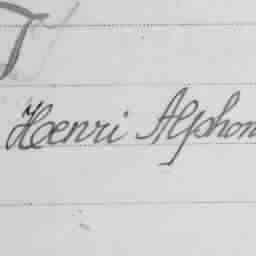 Henri Alphon